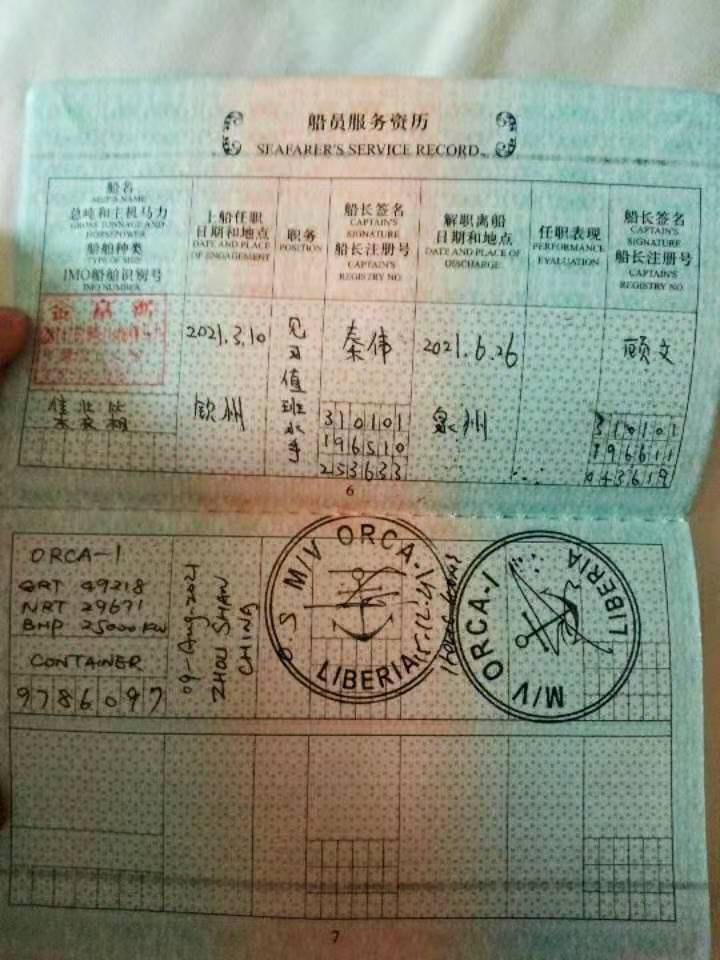 船员服务资历
SEAFARER'S SERVICE RECORD
船名
SHIP'S NAME
总吨和主机马力
GROSS TONNAGE AND
HORSEPOWER
船舶种类
TYPE OF SHIP
IMO船舶识别号
IMO NUMBER
上船任职
日期和地点
DATE AND PLACE
OF ENGAGEMENT
职务
POSITION
船长签名
CAPTAIN'S
SIGNATURE
船长注册号
CAPTAIN'S
REGISTRY NO
解职离船
日期和地点
DATE AND PLACE OF
DISCHARGE
任职表现
PERFORMANCE
EVALUATION
船长签名
CAPTAIN'S
SIGNATURE
船长注册号
CAPTAIN'S
REGISTRY NO
2021.3.10
钦州
见习值班水手
秦伟
310101
196510
253633
2021.6.26
泉州
顾文
310101
196611
043619
6
ORCA-1
GRT 49218
NRT 29671
BHP 25000 KW
CONTAINER
9786097
09-Aug-2021
ZHOU SHAN
CHINA
O.S
M/V ORCA-1
LIBERIA
M/V ORCA-1
LIBERIA
7